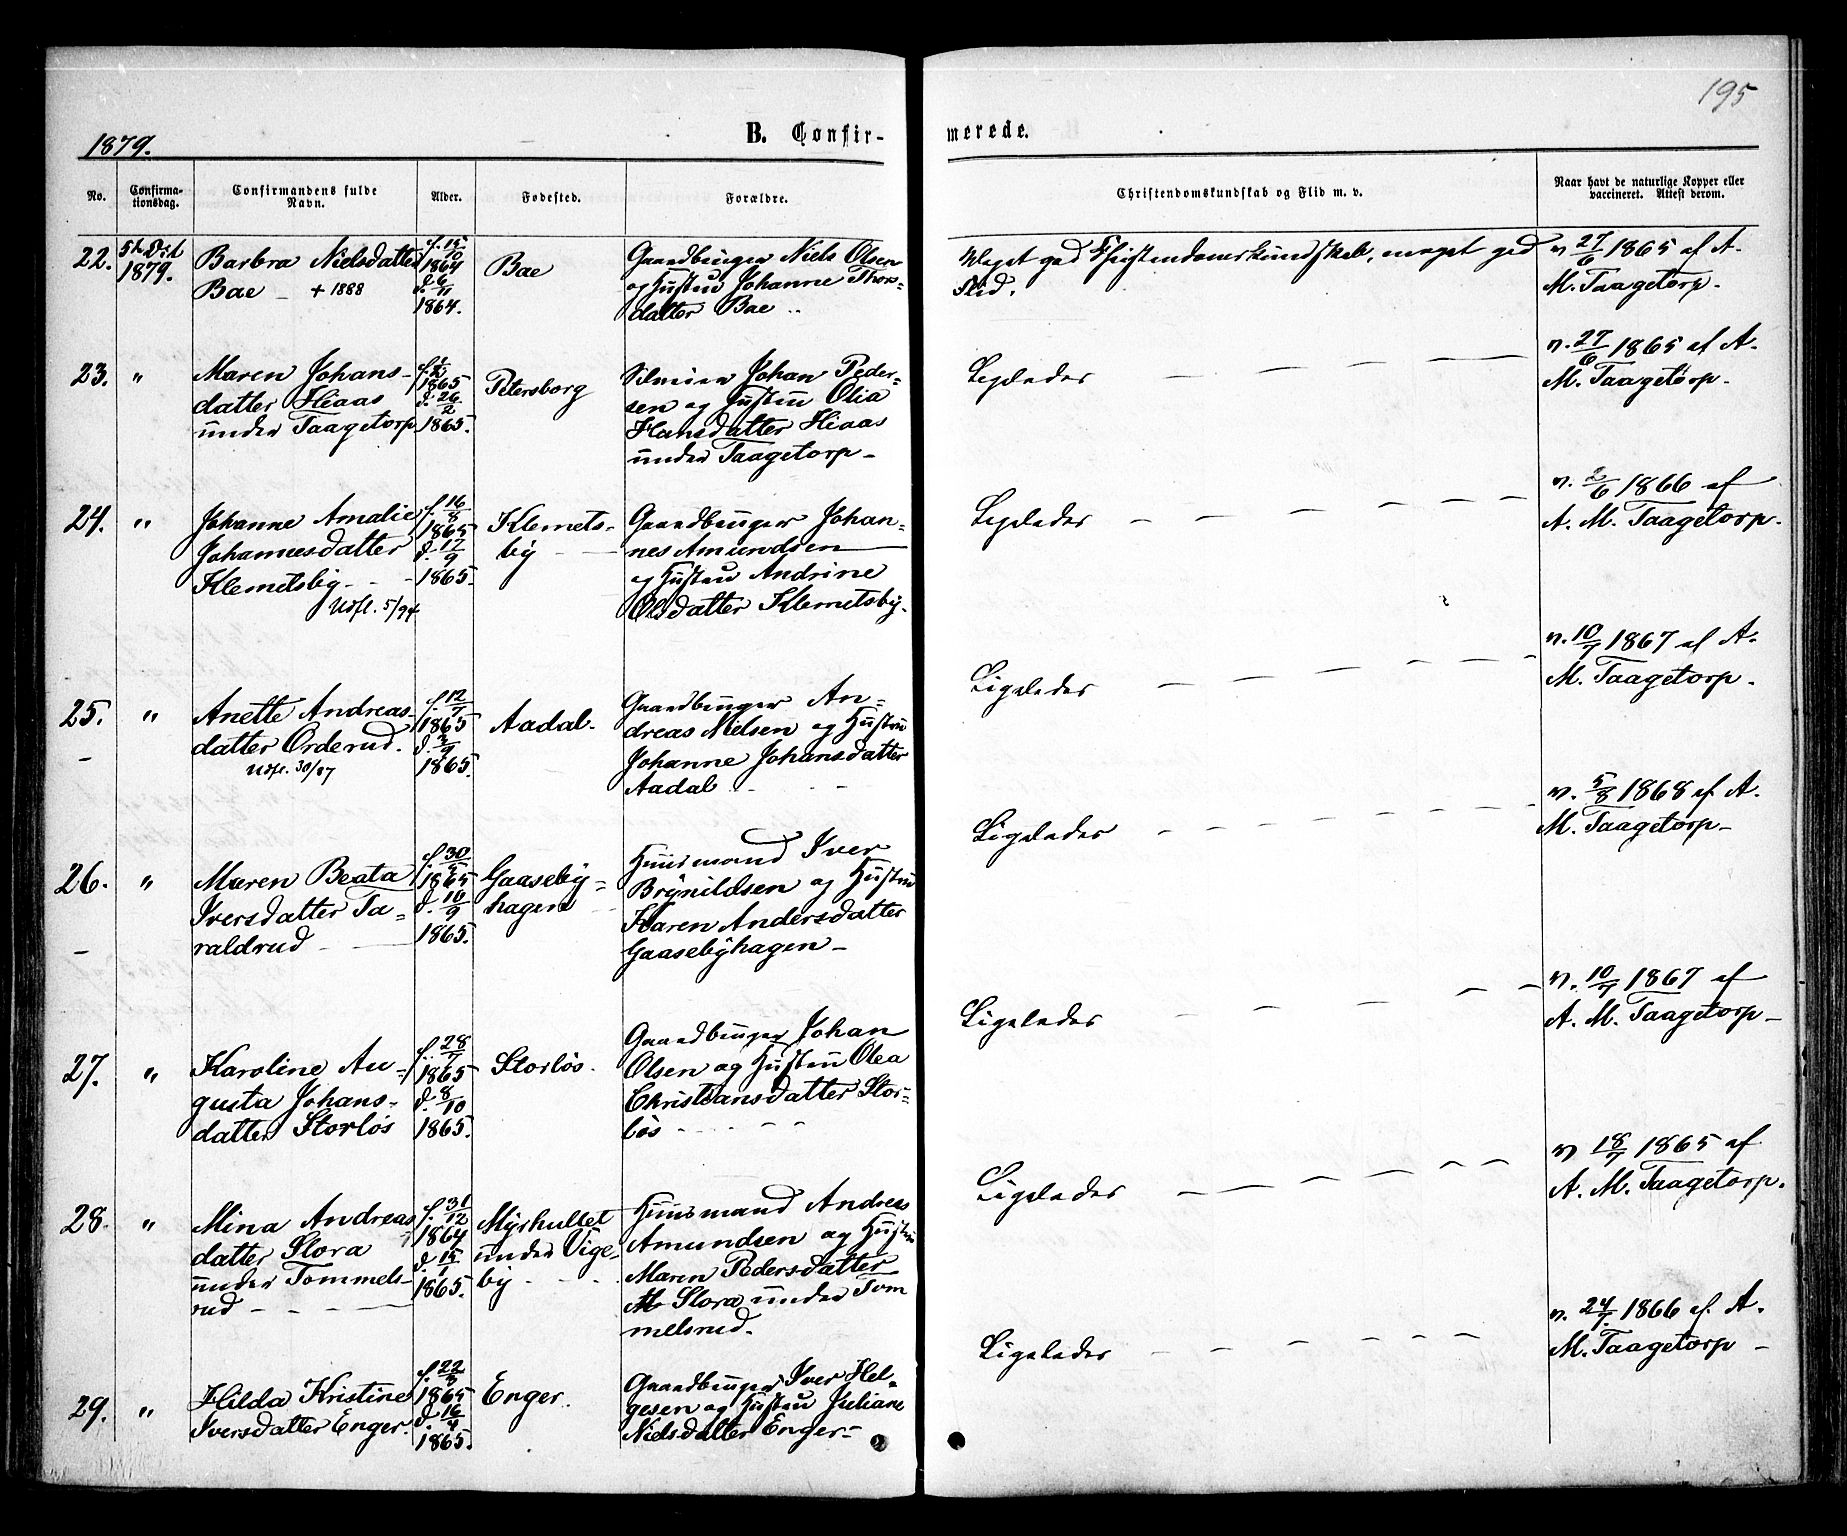 195
1879.
B. Confir-
merede.
No.
Confirma-
tionsdag.
Confirmandens fulde
Navn.
Alder.
Fødested.
Forældre.
Christendomskundskab og Flid m. v.
Naar havt de naturlige Kopper eller
vaccineret. Attest derom.
22.
1879.
Barbra Nielsdatter
Bae + 1888
f. 15/10
1864
d. 6/11
1864.
Bae
Gaardbruger Niels Olsen
og Hustru Johanne Thors-
datter Bae
Meget god Christendomskundskab, meget god
Flid.
v 27/6 1865 af A.
M. Taagetorp.
23.
"
Maren Johans-
datter Hiaas
under Taagetorp
1865
d. 26/2
1865.
Petersborg
Johan Peder-
sen og Hustru Olia
Hansdatter Hiaas
under Taagetorp
Ligeledes
v. 27/6 1865 af A.
M. Taagetorp.
24.
"
Johanne Amalie
Johannesdatter
Klemetsby
Udfl. 5/94
f. 16/8
1865
d. 17/9
1865.
Klemets-
by
Gaardbruger Johan-
nes Amundsen
og Hustru Andrine
Olsdatter Klemetsby.
Ligeledes
v. 2/6 1866 af
A. M. Taagetorp.
25.
"
Anette Andreas-
datter Orderud.
Udfl. 30/97
f. 12/7
1865
d. 3/9
1865.
Aadal.
Gaardbruger An-
dreas Nielsen og Hustru
Johanne Johansdatter
Aadal
Ligeledes
v. 10/7 1867 af A.
M. Taagetorp.
26.
"
Maren Beata
Iversdatter Ta-
raldrud
f. 30/5
1865
d. 10/9
1865.
Gaaseby-
hagen
Huusmand Iver
Brynildsen og Hustru
Karen Andersdatter
Gaasebyhagen
Ligeledes
v. 5/8 1868 af A.
M. Taagetorp
27.
"
Karoline Au-
gusta Johans-
datter Storløs
f. 28/7
1865
d. 8/10
1865.
Storløs.
Gaardbruger Johan
Olsen og Hustru Olea
Christiansdatter Stor-
løs
Ligeledes
v. 10/7 1867 af
A. M. Taagetorp
28.
"
Mina Andreas
datter Slora
under Tommels-
rud
f. 31/12
1864
d. 15/1
1865.
Myrhultet
under Vige-
by
Huusmand Andreas
Amundsen og Hustru
Maren Pedersdatter
Slora under Tom
melsrud.
Ligeledes
v 18/7 1865 af
A. M. Taagetorp.
29.
"
Hilda Kristine
Iversdatter Enger.
f. 22/3
1865
d. 16/4
1865.
Enger.
Gaardbruger Iver Hel-
gesen og Hustru Juliane
Nielsdatter Enger
Ligeledes
v. 24/7 1866 af A.
M. Taagetorp